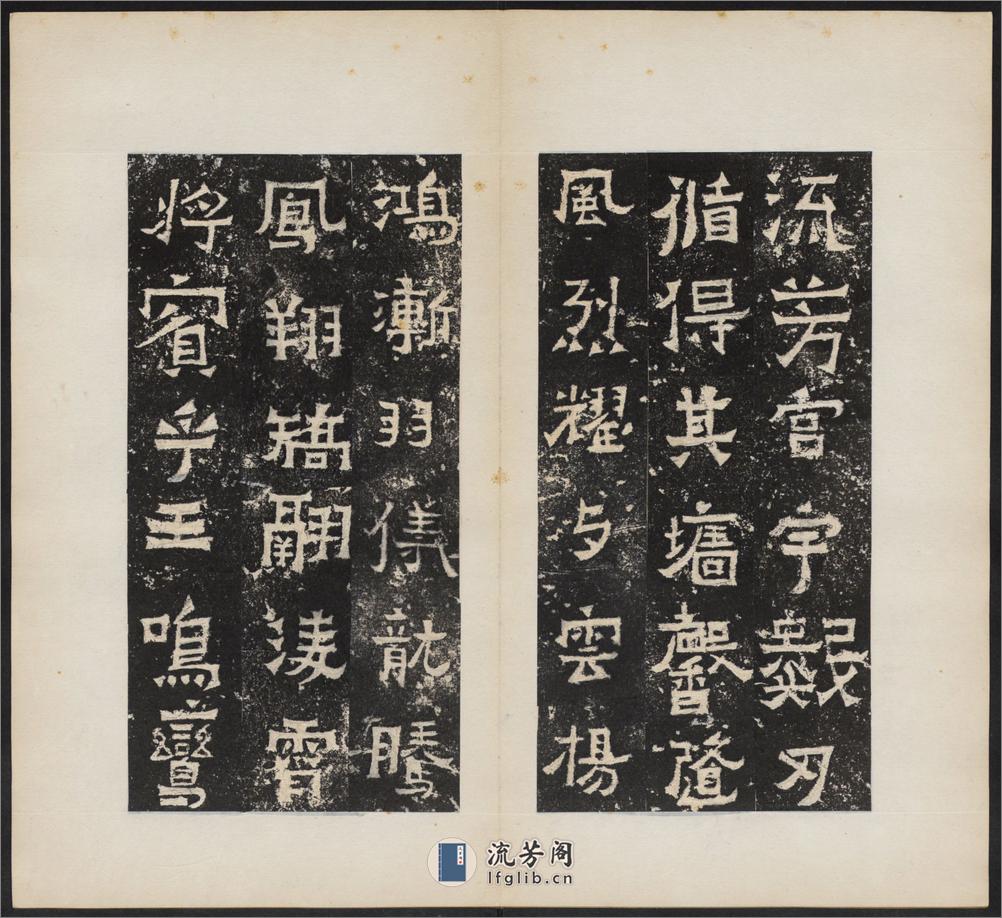 流芳宮宇數刃
循得其墻馨隨
風烈耀与雲揚
鴻漸羽儀龍騰
鳳翔矯翮淩霄
將賓乎王鳴鸞
流芳阁
lfglib.cn